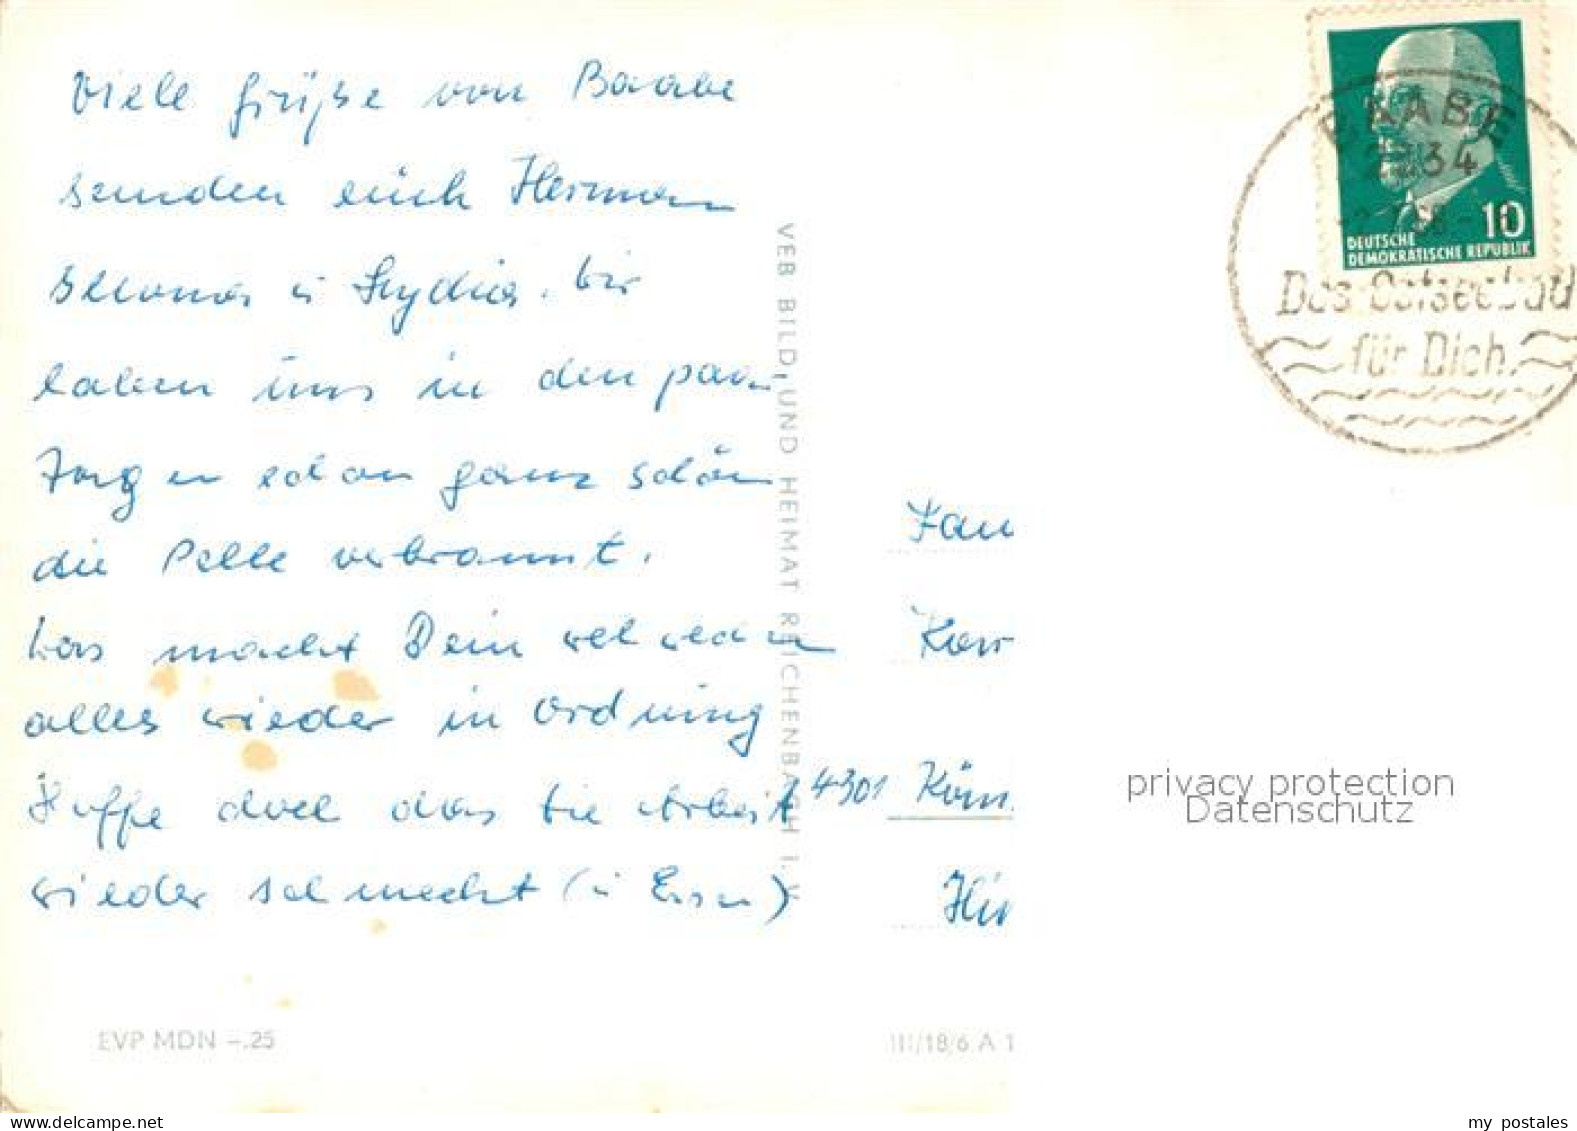 Viele Grüße von Baabe
senden euch Herman
Ilona u Lydia. Wir
haben uns in den paar
Tagen schon ganz schön
die Pelle verbrannt.
Was macht Dein
alles wieder in Ordnung
Hoffe doch das die Arbeit
wieder schmeckt
EVP MDN –.25
VEB BILD UND HEIMAT REICHENBACH I. V.
BAABE
2234
10
DEUTSCHE
DEMOKRATISCHE REPUBLIK
Das Ostseebad
für Dich
Fam
Kar
4301 Kön
III/18/6 A 1
privacy protection
Datenschutz
my postales